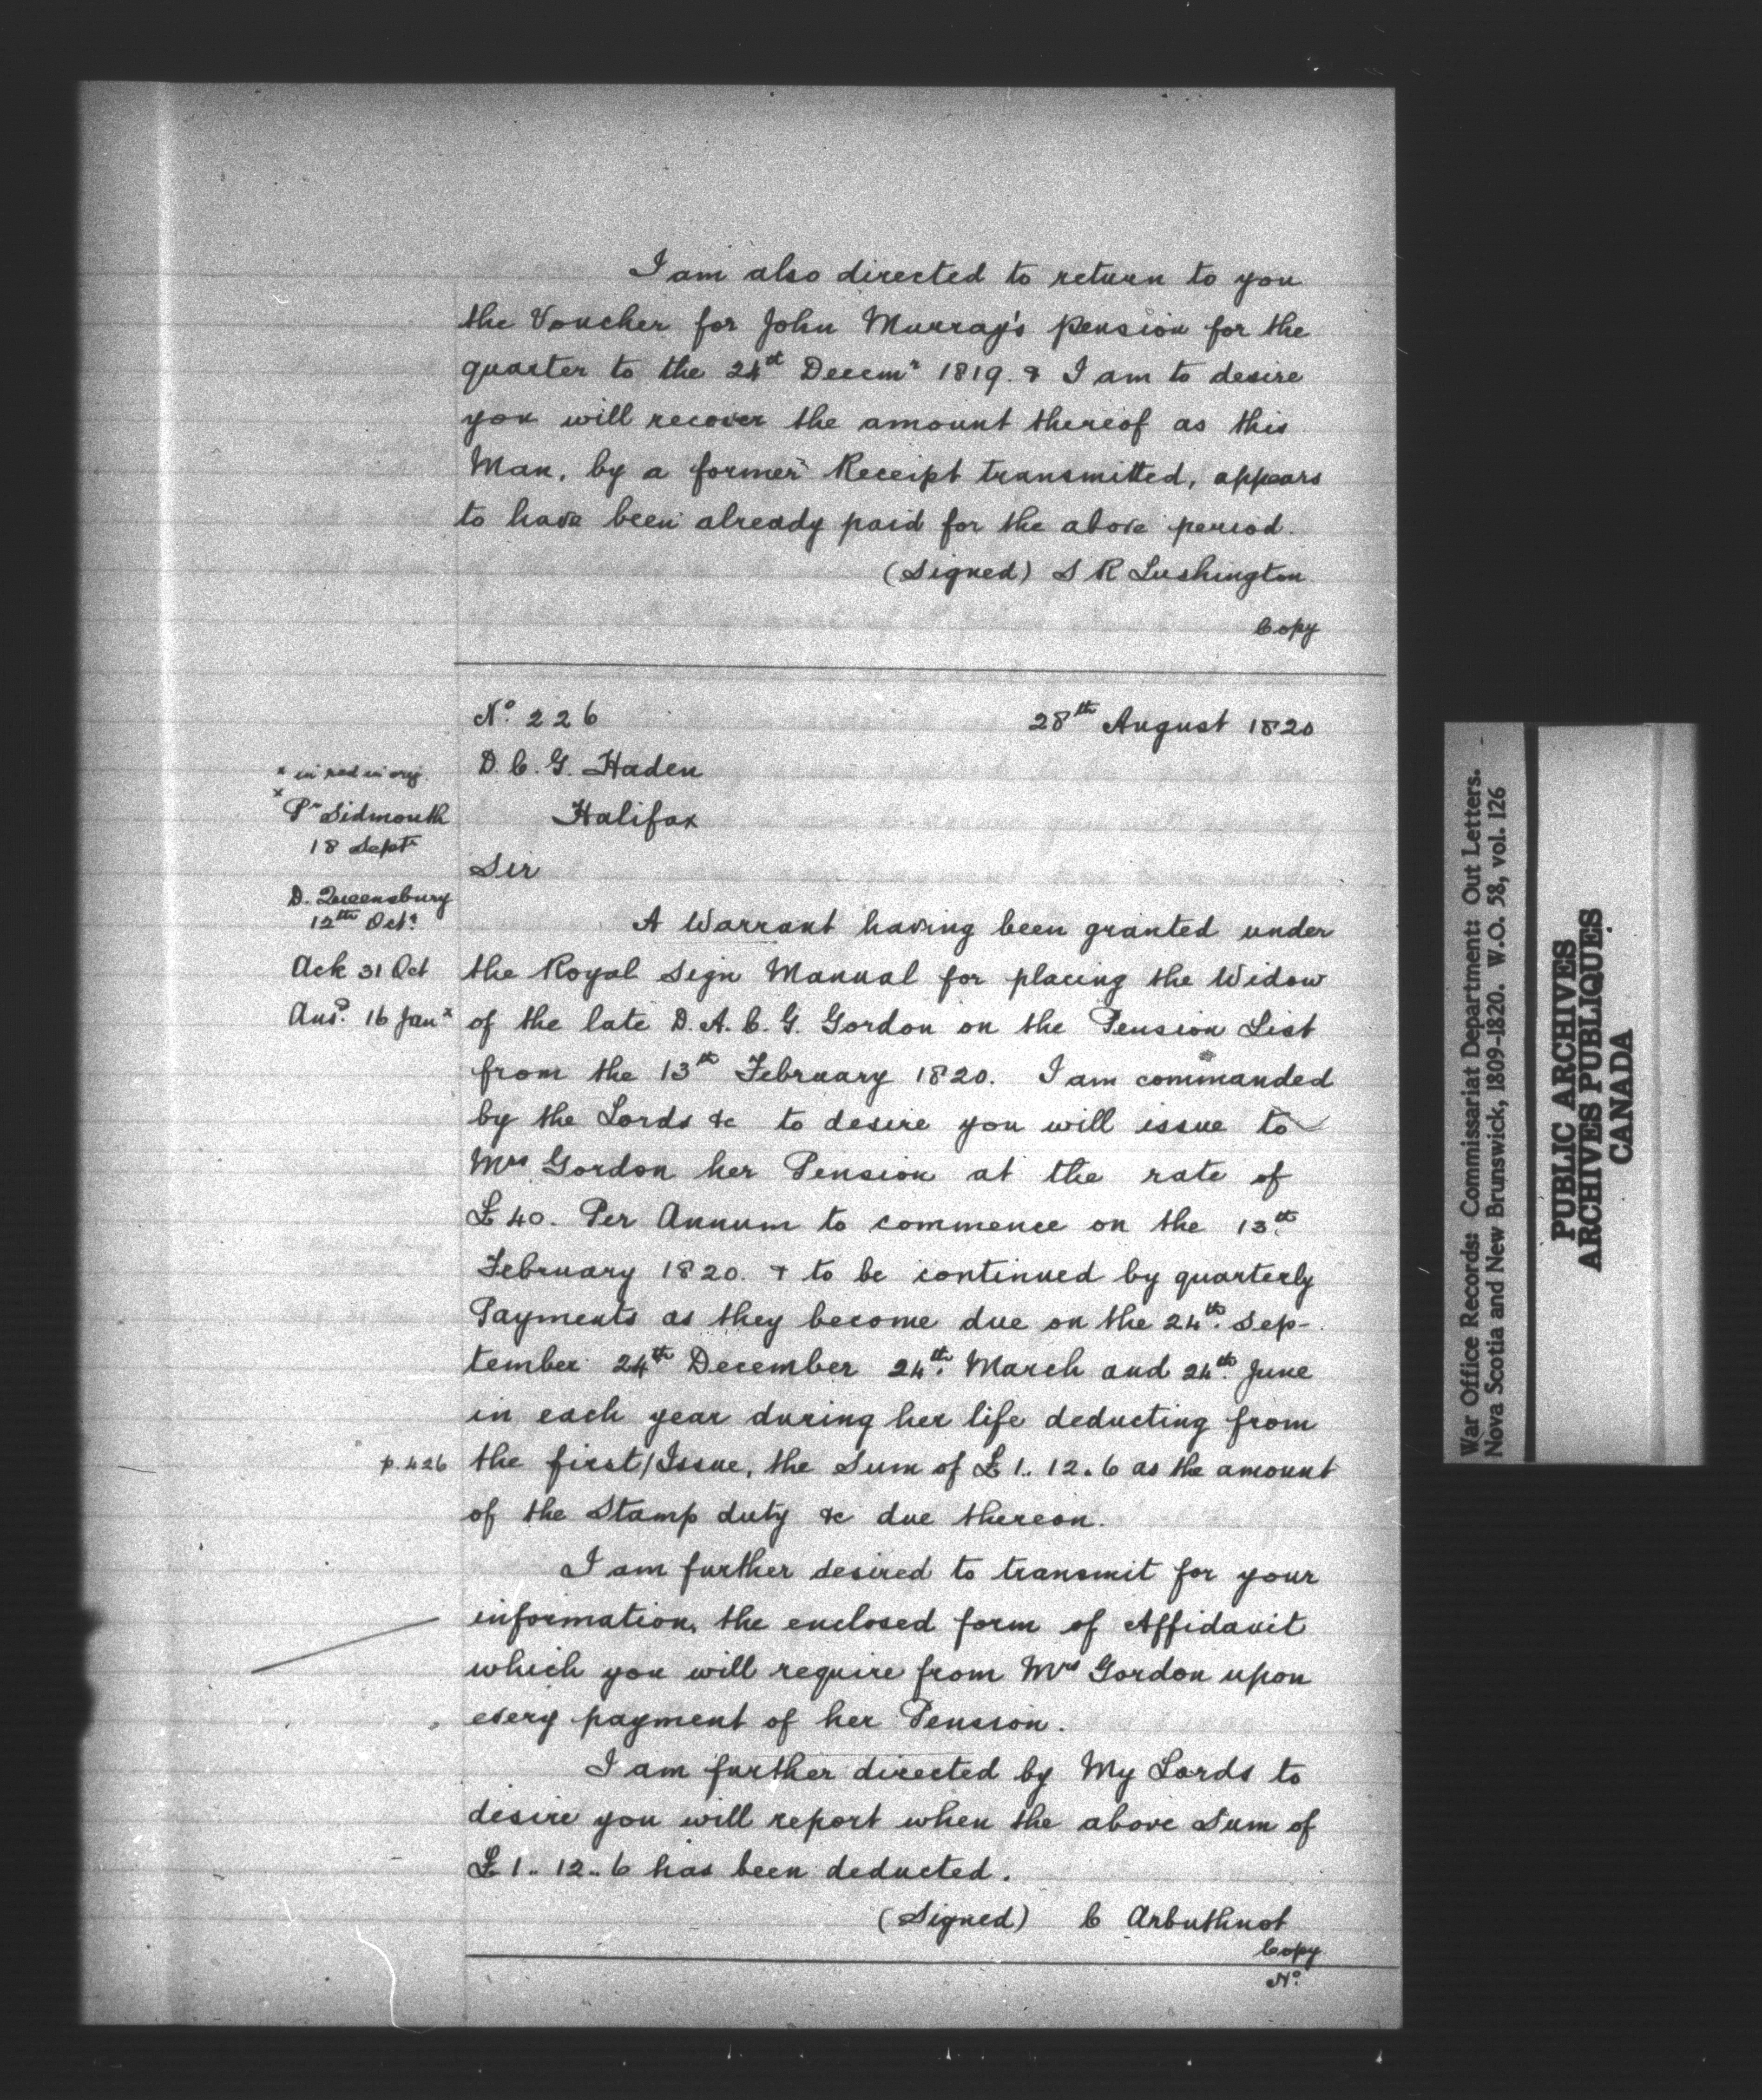 I am also directed to return to you
the Voucher for John Murray's pension for the
quarter to the 24st Decemr 1819. & I am to desire
you will recover the amount thereof as this
Man, by a former Receipt transmitted, appears
to have been already paid for the above period.
(Signed) S R Lushington
Copy
No. 226 28th August 1820
D. C. G. Haden
Halifax
Sir
* in red in orig.
x Pr Sidmouth
18 Septr
D. Queensbury
12th Octr
Ack 31 Oct
Ansd. 16 Janx
A Warrant having been granted under
the Royal Sign Manual for placing the Widow
of the late D. A. C. G. Gordon on the Pension List
from the 13th February 1820. I am commanded
by the Lords &c to desire you will issue to
Mrs Gordon her Pension at the rate of
£40. Per Annum to commence on the 13th.
February 1820. & to be continued by quarterly
Payments as they become due on the 24th. Sep-
tember 24th December 24th. March and 24th. June
in each year during her life deducting from
p. 426 the first/Issue, the Sum of £1.. 12.. 6 as the amount
of the Stamp duty &c due thereon.
I am further desired to transmit for your
information, the enclosed form of Affidavit
which you will require from Mrs Gordon upon
every payment of her Pension.
I am further directed by My Lords to
desire you will report when the above Sum of
£1.. 12.. 6 has been deducted.
(Signed) C Arbuthnot
Copy
No.
War Office Records: Commissariat Department: Out Letters.
Nova Scotia and New Brunswick, 1809-1820. W.O. 58, vol. 126
PUBLIC ARCHIVES
ARCHIVES PUBLIQUES
CANADA